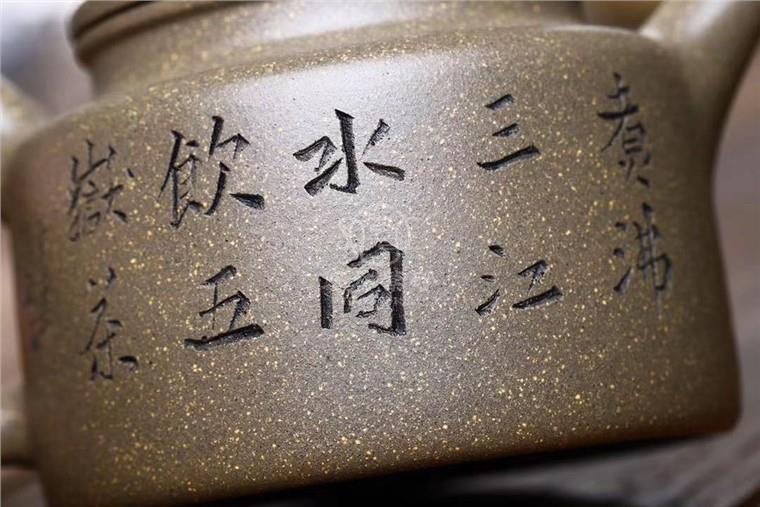 煮沸
三江
水同
飲五
嶽茶